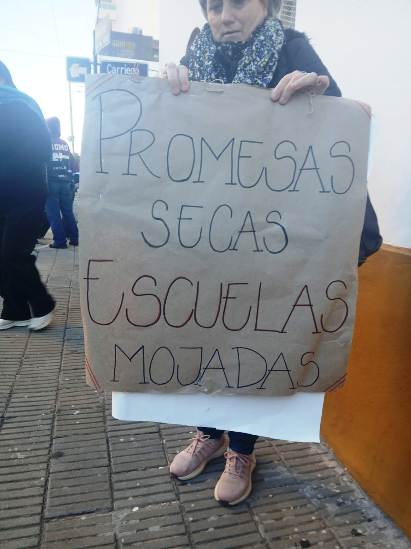 Carriego
PROMESAS
SECAS
ESCUELAS
MOJADAS